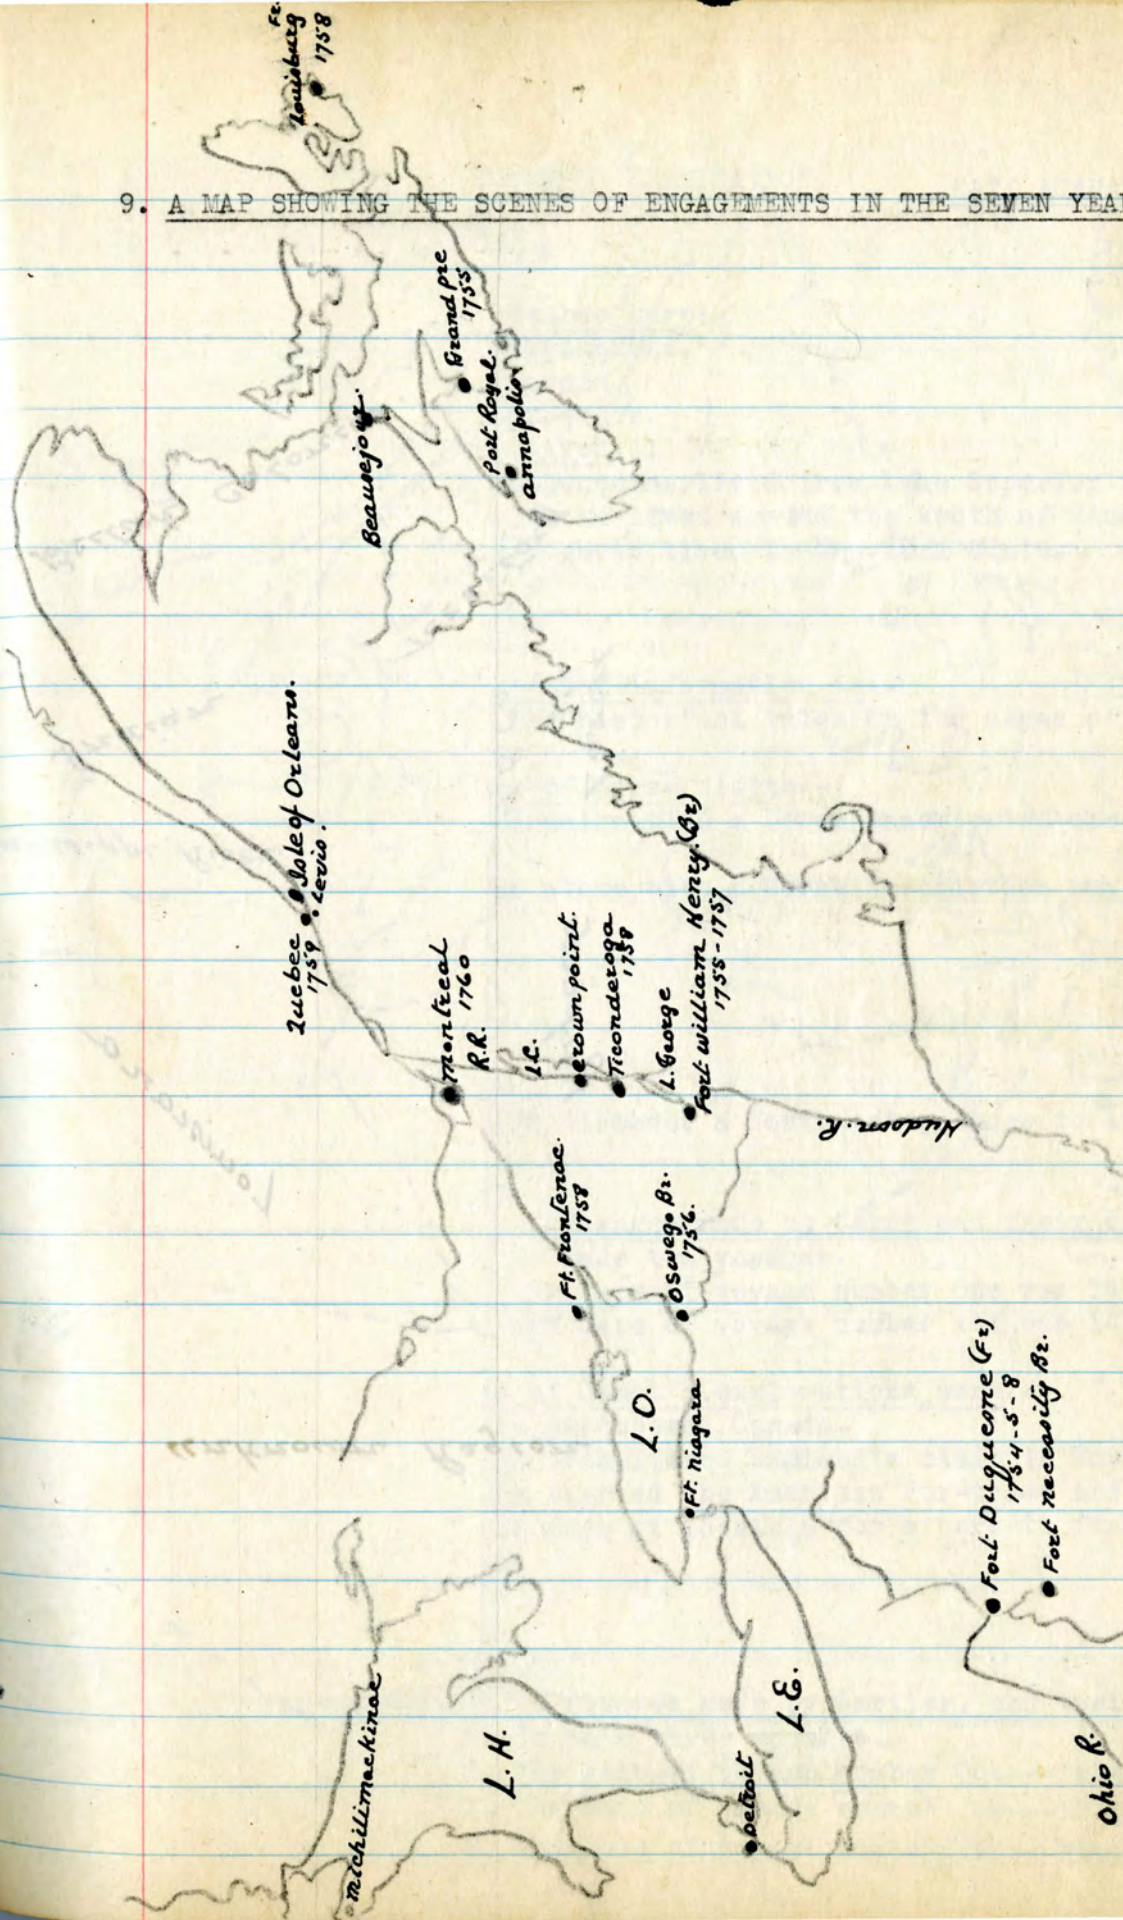 9. A MAP SHOWING THE SCENES OF ENGAGEMENTS IN THE SEVEN YEA
Louisburg Fr.
1758
Grand pre
1755
Port Royal.
annapolis
Beausejour.
Isle of Orleans.
Levis.
Quebec
1759
montreal
1760
R.R.
L.C.
crownpoint.
Ticonderoga
1758
L. George
Fort William Henry. (Br)
1755-1757
Hudson. R.
Ft. Frontenac.
1758
Oswego Br.
1756.
L.O.
Ft. niagara
Fort Duquesne (Fr)
1754-5-8
Fort necessity Br.
michilimackinac
L. H.
Detroit
L.E.
Ohio R.
unknown Region